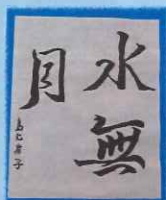 水無
月